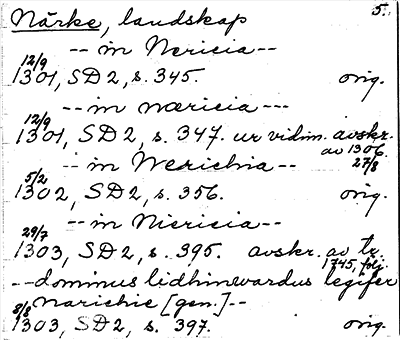 Närke, landskap 5.
-- in Nericia --
12/9
1301, SD 2, s. 345. orig.
-- in næricia ---
12/9
1301, SD 2, s. 347. ur vidim. avskr.
av 1306 27/8
-- in Nerichia --
5/2
1302, SD 2, s. 356. orig.
-- in Niericia --
29/7
1303, SD 2, s. 395. avskr. av tr.
1745, fol.
-- dominus lidhinwardus legifer
narichie [gen.] --
8/8
1303, SD 2, s. 397. orig.